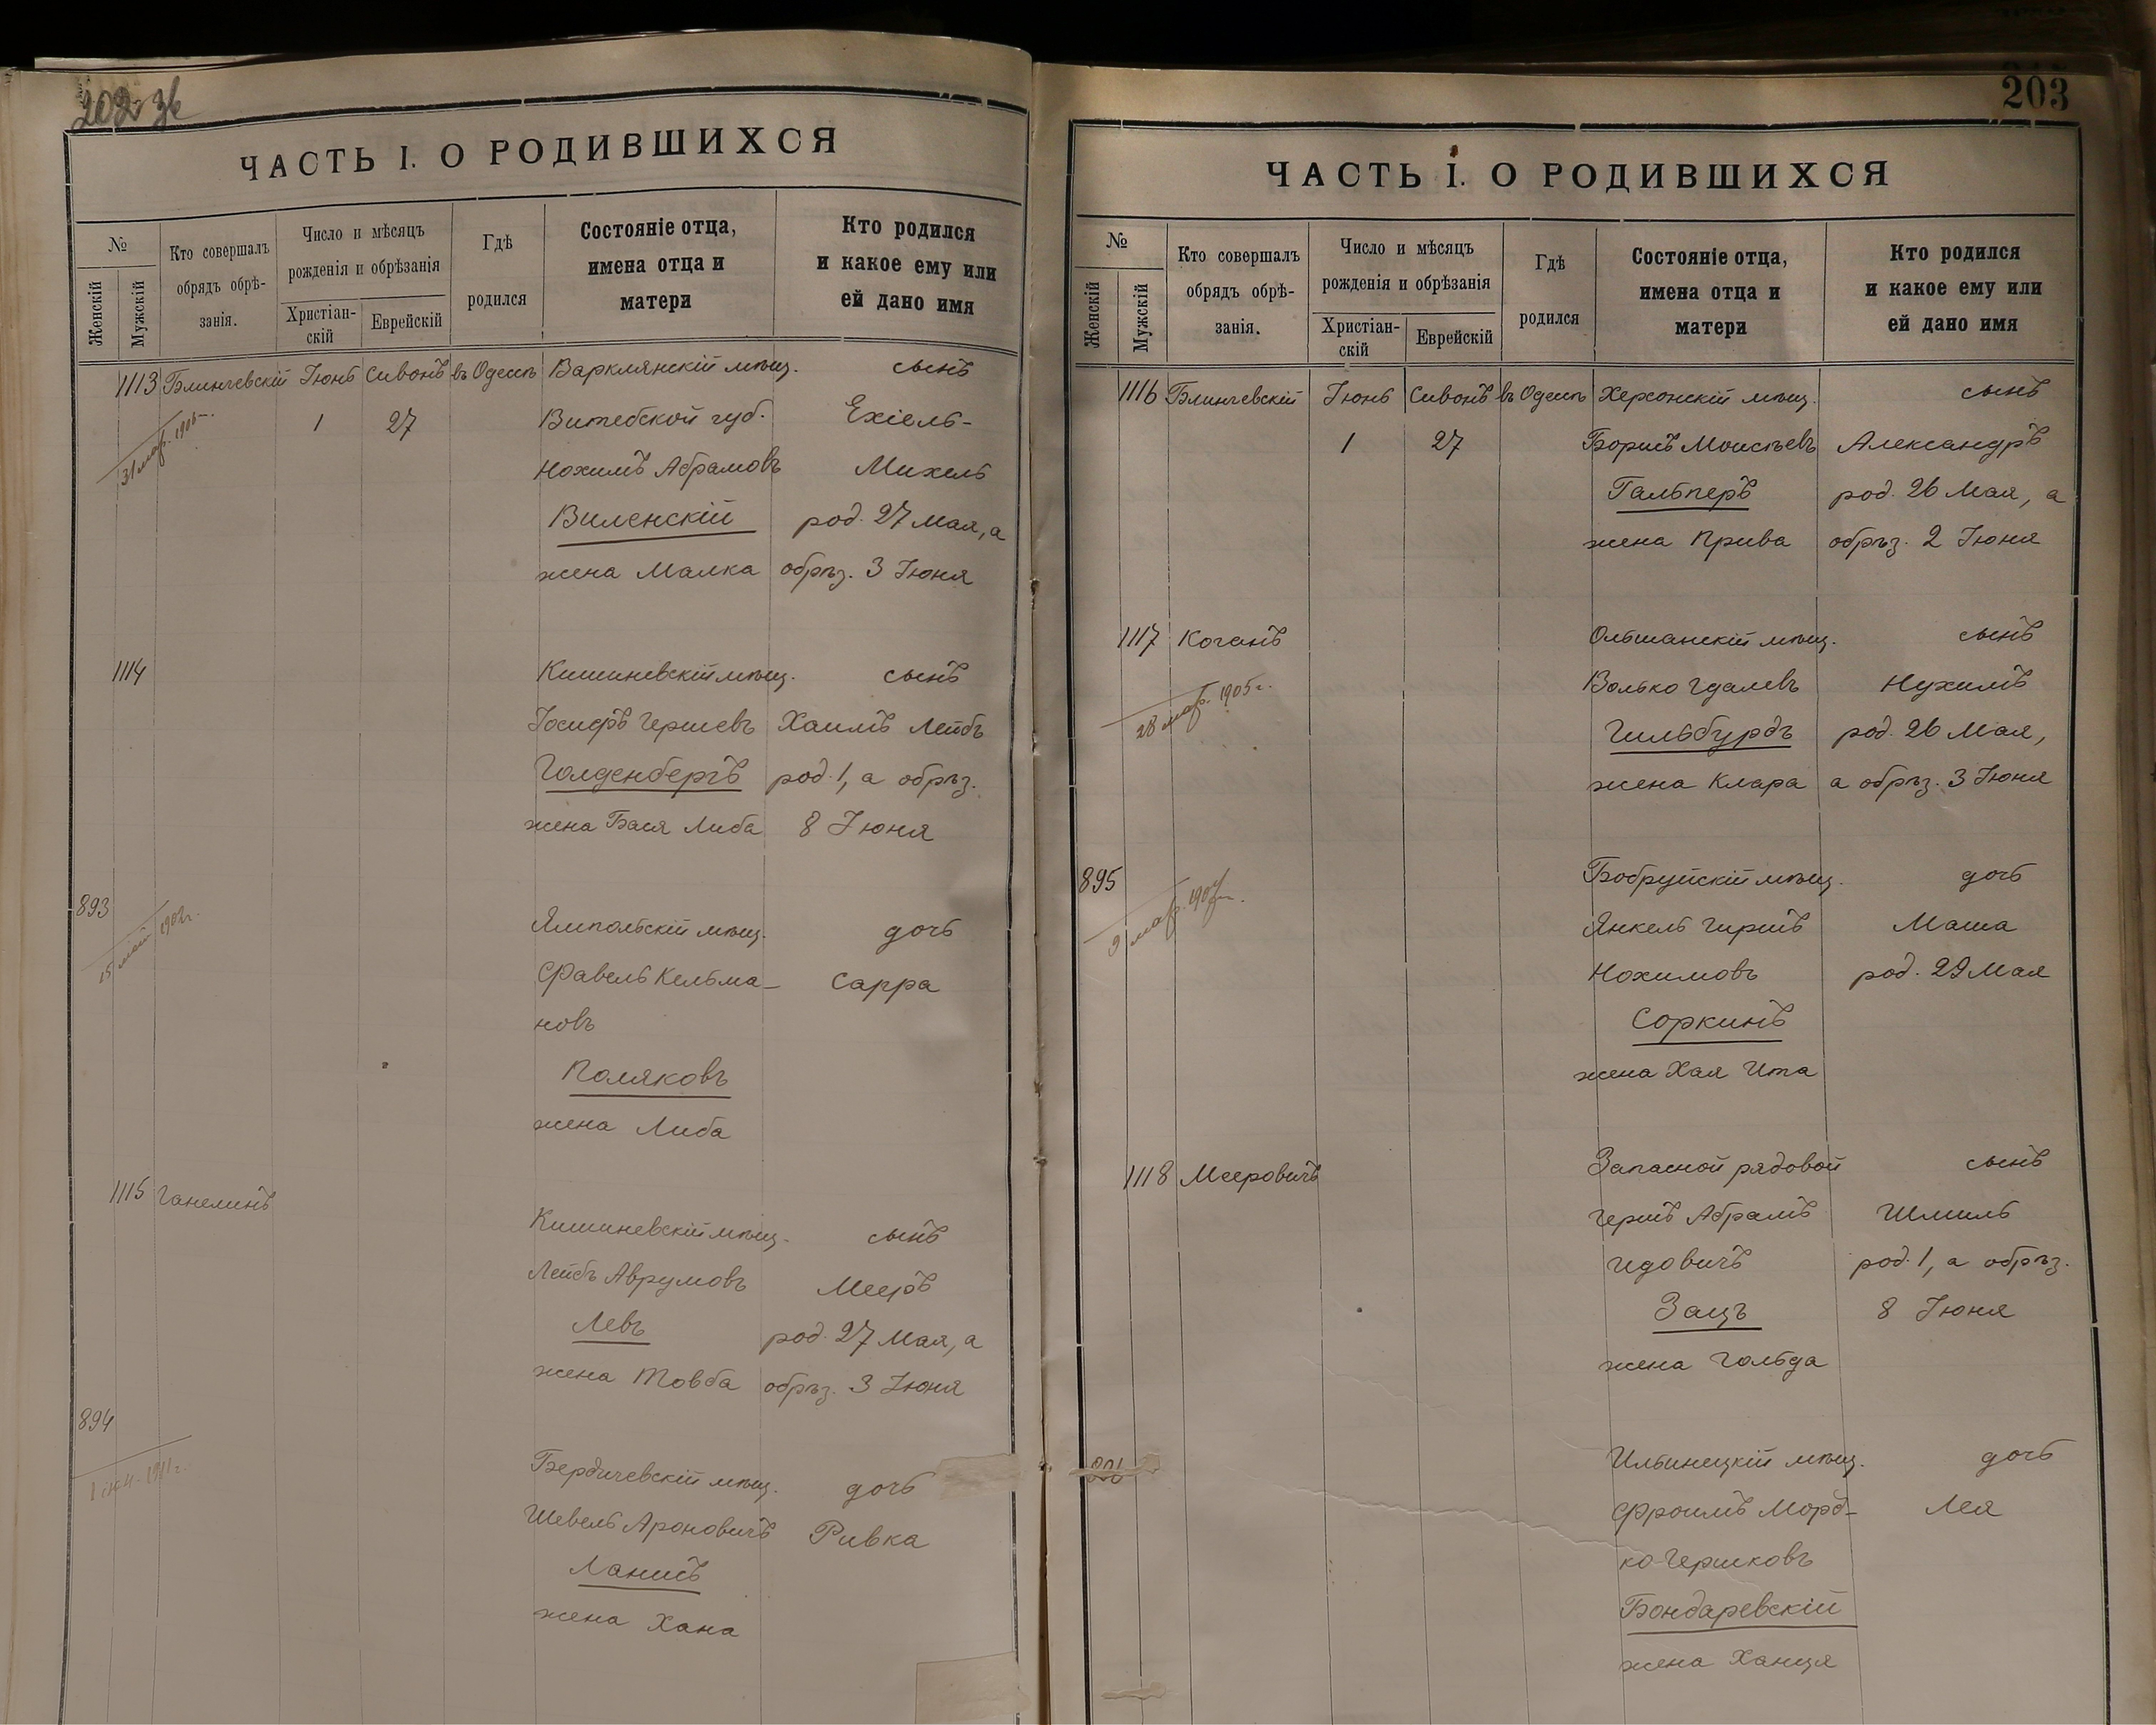 202 зв
ЧАСТЬ I. О РОДИВШИХСЯ
№
Женскій
Мужскій
Кто совершалъ
обрядъ обрѣ-
занія.
Число и мѣсяцъ
рожденія и обрѣзанія
Христіан-
скій
Еврейскій
Гдѣ
родился
Состояніе отца,
имена отца и
матери
Кто родился
и какое ему или
ей дано имя
1113 Блинчевскій Іюнь Сивонъ въ Одессѣ Варклянскій мѣщ. сынъ
31 мар. 1905 1 27 Витебской губ. Ехіель-
Нохимъ Абрамовъ Михель
Виленскій род. 27 Мая, а
жена Малка обрѣз. 3 Іюня
1114 Кишиневскій мѣщ. сынъ
Іосифъ Гершевъ Хаимъ Лейбъ
Голденбергъ род. 1, а обрѣз.
жена Бася Либа 8 Іюня
893 Ямпольскій мѣщ. дочь
15 май 1902 г. Фавель Кельма- Сарра
новъ
Поляковъ
жена Либа
1115 Ганелинъ Кишиневскій мѣщ. сынъ
Лейбъ Аврумовъ Мееръ
Левъ род. 27 Мая, а
жена Товба обрѣз. 3 Іюня
894 Бердичевскій мѣщ. дочь
1911 г. Шевель Ароновичъ Ривка
Ланисъ
жена Хана
203
ЧАСТЬ I. О РОДИВШИХСЯ
№
Женскій
Мужскій
Кто совершалъ
обрядъ обрѣ-
занія.
Число и мѣсяцъ
рожденія и обрѣзанія
Христіан-
скій
Еврейскій
Гдѣ
родился
Состояніе отца,
имена отца и
матери
Кто родился
и какое ему или
ей дано имя
1116 Блинчевскій Іюнь Сивонъ въ Одессѣ Херсонскій мѣщ. сынъ
1 27 Борисъ Моисѣевъ Александръ
Гальперъ род. 26 Мая, а
жена Прива обрѣз. 2 Іюня
1117 Коганъ Ольшанскій мѣщ. сынъ
Волько Гдалевъ Нухимъ
28 мар. 1905 г. Гильбурдъ род. 26 Мая,
жена Клара а обрѣз. 3 Іюня
895 Бобруйскій мѣщ. дочь
9 мар. Янкель Гиршъ Маша
Нохимовъ род. 29 Мая
Соркинъ
жена Хая Ита
1118 Мееровичъ Запасной рядовой сынъ
Гершъ Абрамъ Шмиль
Идовичъ род. 1, а обрѣз.
Зацъ 8 Іюня
жена Гольда
896 Ильинецкій мѣщ. дочь
Фроимъ Морд- Лея
ко Гершковъ
Бондаревскій
жена Ханця